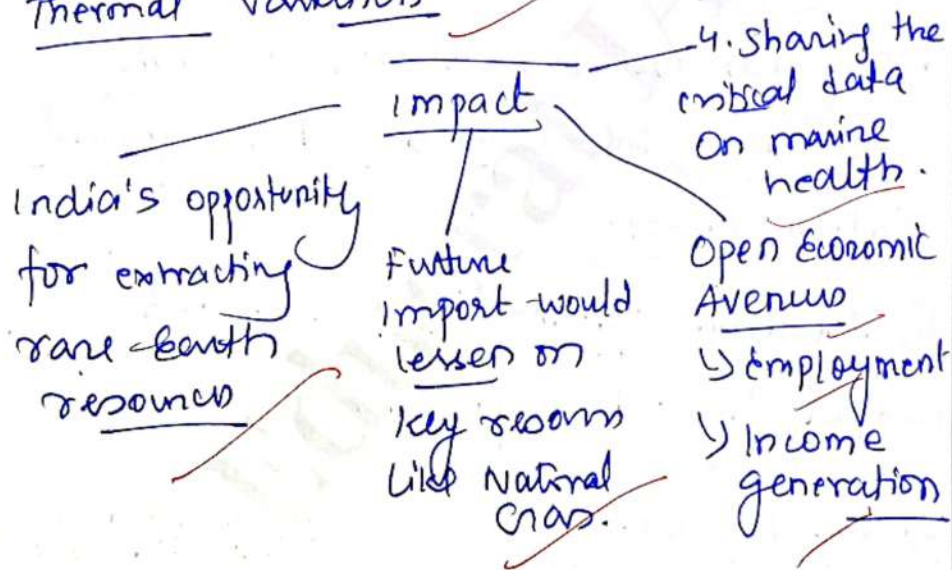 Thermal Variations
Impact
4. Sharing the
critical data
on marine
health.
India's opportunity
for extracting
rare-earth
resources
Future
import would
lessen on
key resours
like Natural
Gas.
Open Economic
Avenues
↳ Employment
↳ Income
generation